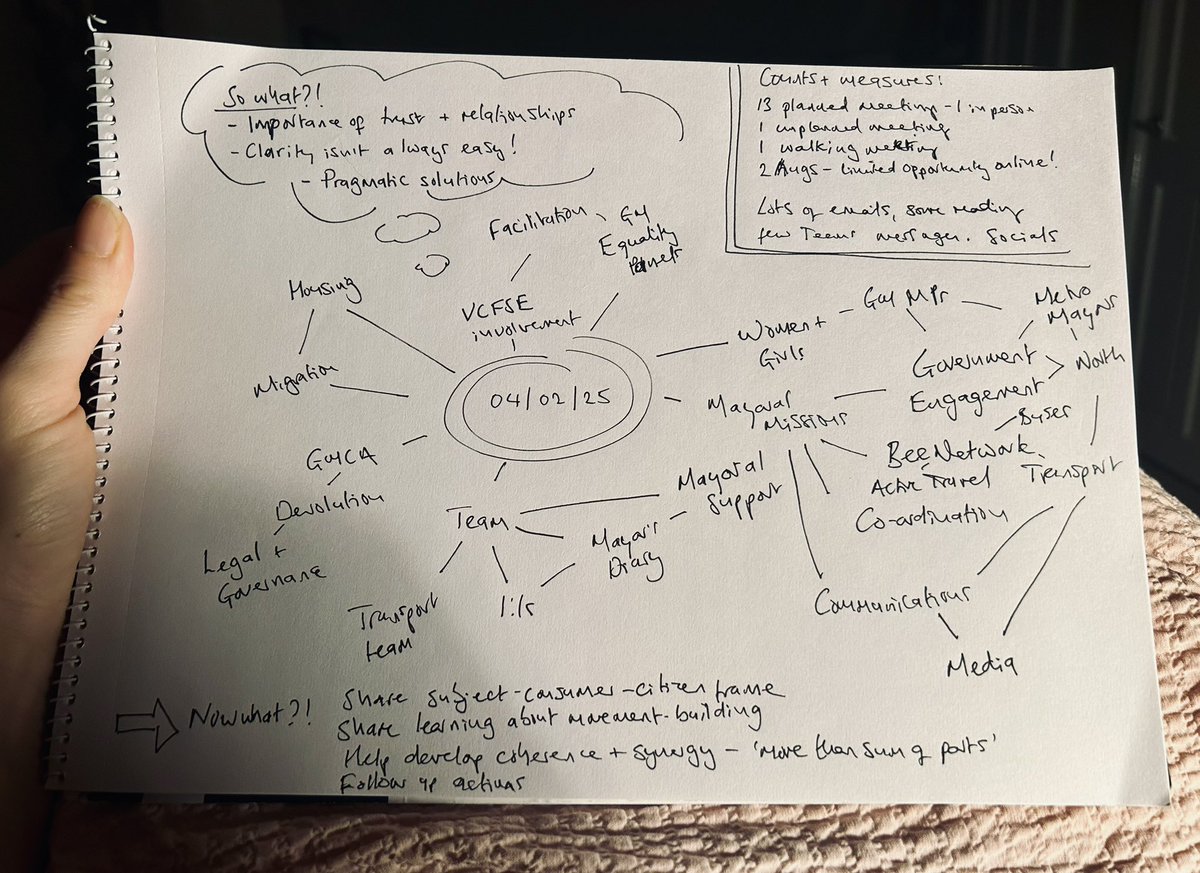 So what?!
- Importance of trust + relationships
- Clarity isn't always easy!
- Pragmatic solutions
Counts + measures!
13 planned meeting - 1 in person
1 unplanned meeting
1 walking meeting
2 Hugs - limited opportunity online!
Lots of emails, some reading
few Teams messages. Socials
Facilitation
GM
Equality
Panels
VCFSE
involvement
Housing
Migration
04/02/25
Women +
Girls
GM MPs
Metro
Mayors
North
Government
Engagement
Mayoral
Missions
Buses
Bee Network
Active Travel
Transport
Co-ordination
GMCA
Devolution
Legal +
Governance
Team
Mayoral
Support
Mayor's
Diary
1:1s
Transport
team
Communications
Media
Now what?!
Share subject-consumer-citizen frame
Share learning about movement-building
Help develop coherence + synergy - 'more than sum of parts'
Follow up actions